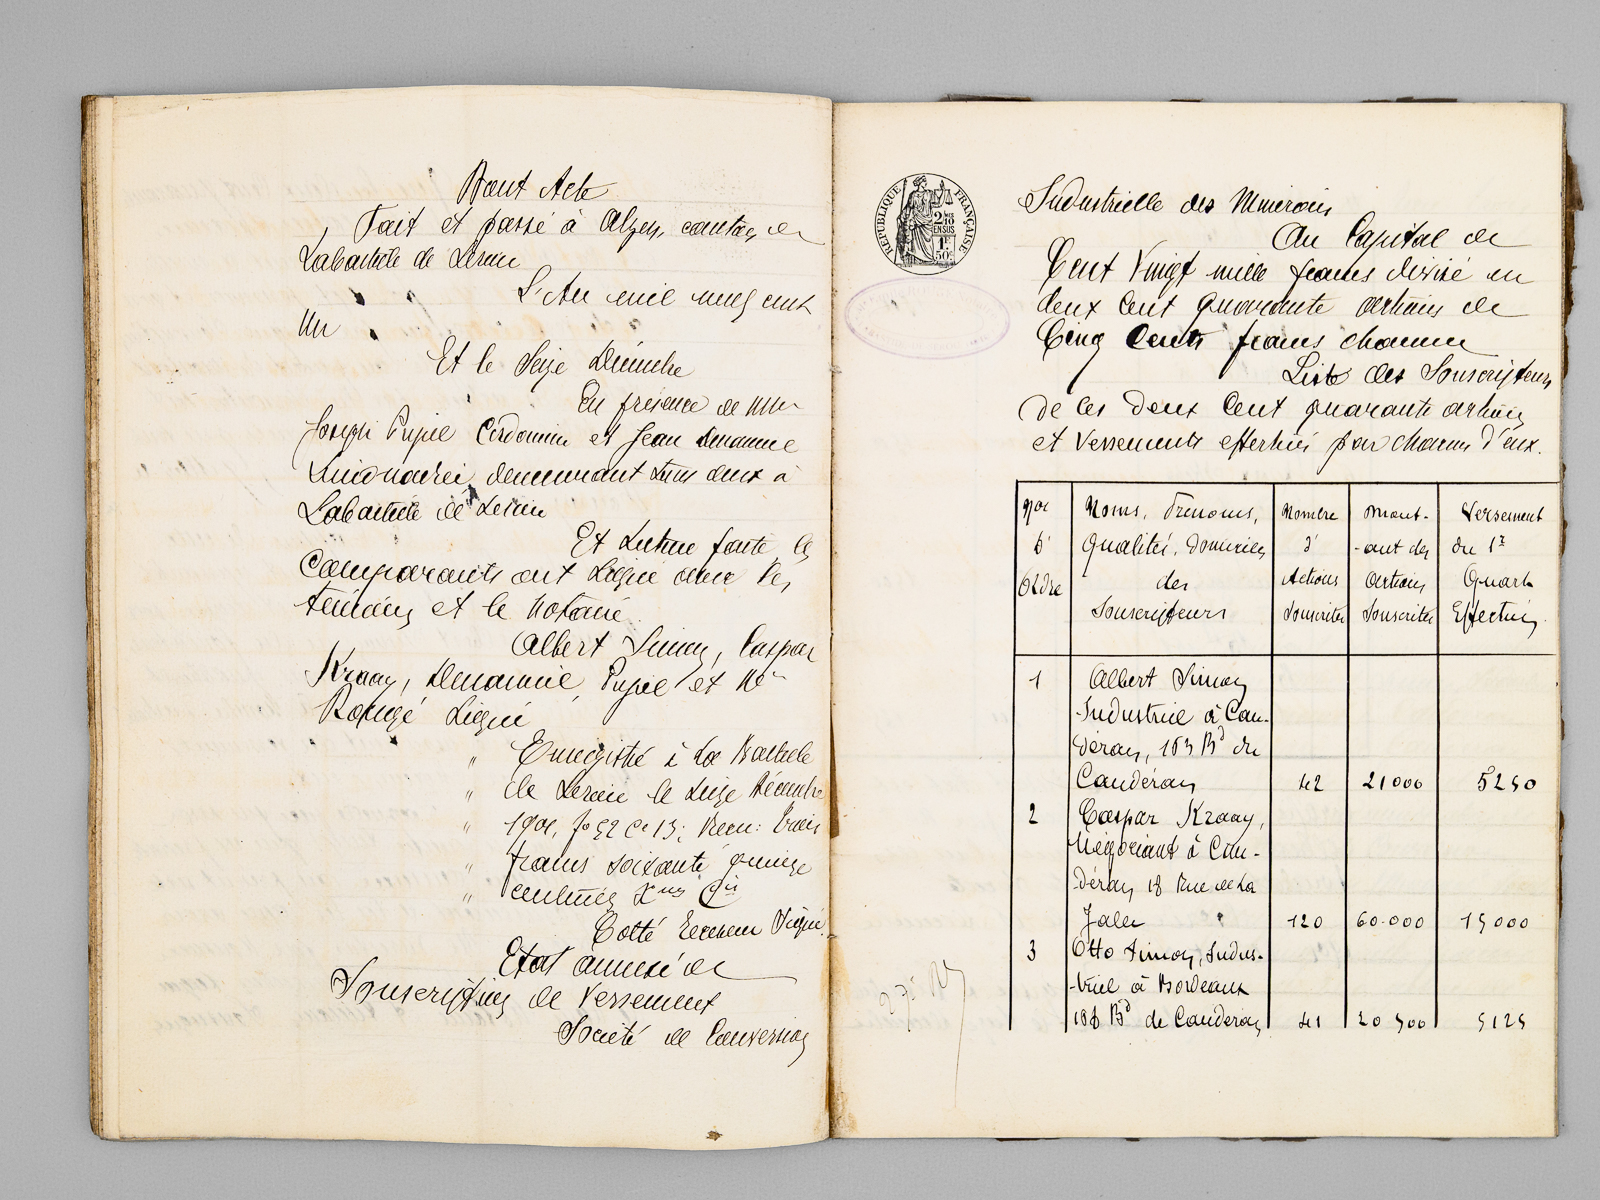 Dont Acte
Fait et passé à Alzen, canton de
Labastide de Sérou
L'An mil neuf cent
Un
Et le Seize Décembre
En présence de MM
Joseph Pujol Cordonnier et Jean Denamiel
demeurant tous deux à
Labastide de Sérou
Et Lecture faite, les
Comparants ont Signé avec les
témoins et le Notaire
Albert Simon, Caspar
Kraay, Denamiel, Pujol et Me
Rougé Signé
" Enregistré à La Bastide
" de Sérou le Seize Décembre
" 1901, fo 52 Ce 13; Recu: trois
" francs soixante quinze
" centimes Dmes Cis
Cotté Receveur Signé.
Etat annexé de
Souscription de Versement
Société de Conversion
RÉPUBLIQUE FRANÇAISE
2/10mes
EN SUS
1F
50c
Industrielle des Minerais
Au Capital de
Cent Vingt mille francs divisé en
deux Cent quarante actions de
Cinq Cents francs chacune
Liste des Souscripteurs
de ces deux Cent quarante actions
et Versements effectués par chacun d'eux.
Nos
d'
Ordre
Noms, Prénoms,
Qualités, Domiciles
des
Souscripteurs
Nombre
d'
Actions
Souscrites
Mont-
-ant des
Actions
Souscrites
Versement
du 1r
Quart
Effectué
1 Albert Simon
Industriel à Cau-
déran, 153 Bd de
Caudéran 42 21000 5250
2 Caspar Kraay,
Négociant à Cau-
déran, 18 Rue de La
120 60.000 15000
3 Otto Simon, Indus-
-triel à Bordeaux
188 Bd de Caudéran 41 20500 5125